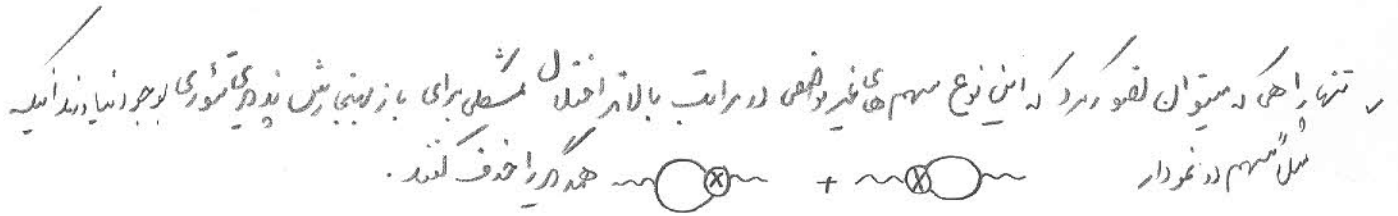 تنها راهی که میتوان تصور کرد که این نوع سهم های غیر موضعی در مراتب بالاتر اختلال مشکلی برای بازبهنجارش پذیری تئوری بوجود نیاورند اینکه
مثلاً سهم دو نمودار + همدیگر را حذف کنند.